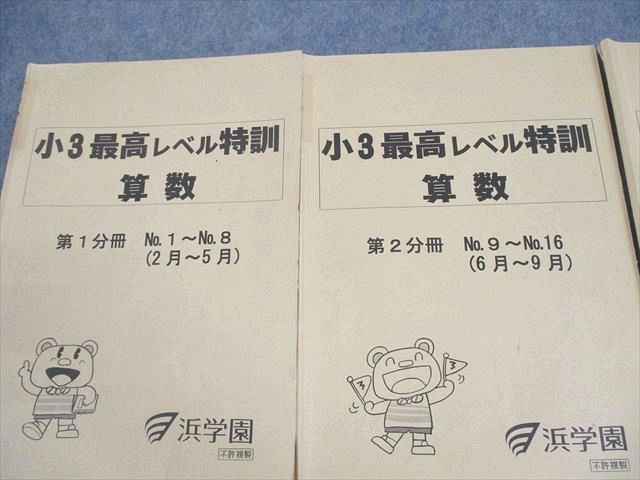 小3最高レベル特訓
算数
第1分冊 No.1～No.8
(2月～5月)
浜学園
不許複製
小3最高レベル特訓
算数
第2分冊 No.9～No.16
(6月～9月)
3
3
浜学園
不許複製